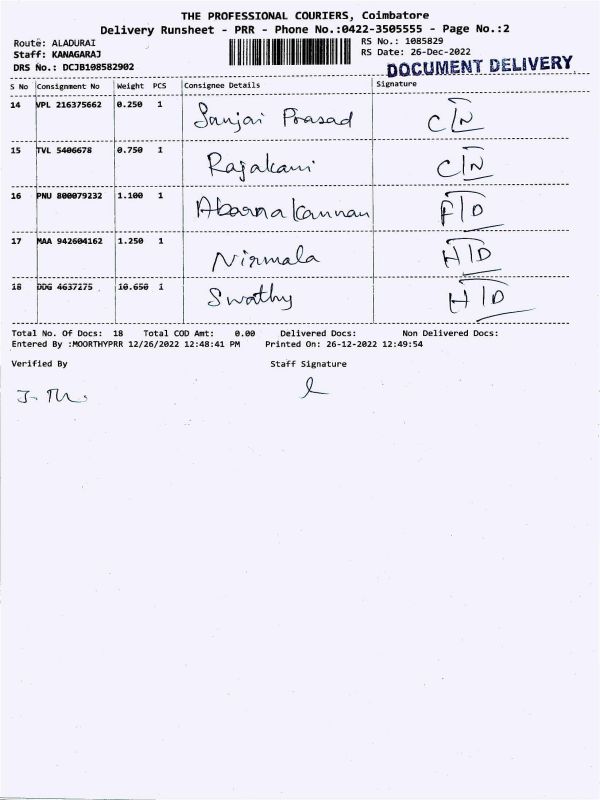 THE PROFESSIONAL COURIERS, Coimbatore
Delivery Runsheet - PRR - Phone No.:0422-3505555 - Page No.:2
Route: ALADURAI RS No.: 1085829
Staff: KANAGARAJ RS Date: 26-Dec-2022
DRS No.: DCJB108582902 DOCUMENT DELIVERY
S No Consignment No Weight PCS Consignee Details Signature
14 VPL 216375662 0.250 1 Sanjai Prasad C/N
15 TVL 5406678 0.750 1 Rajakani C/N
16 PNU 800079232 1.100 1 Abarna Kannan F/D
17 MAA 942604162 1.250 1 Nirmala H/D
18 DDG 4637275 10.650 1 Swathy H/D
Total No. Of Docs: 18 Total COD Amt: 0.00 Delivered Docs: Non Delivered Docs:
Entered By :MOORTHYPRR 12/26/2022 12:48:41 PM Printed On: 26-12-2022 12:49:54
Verified By Staff Signature